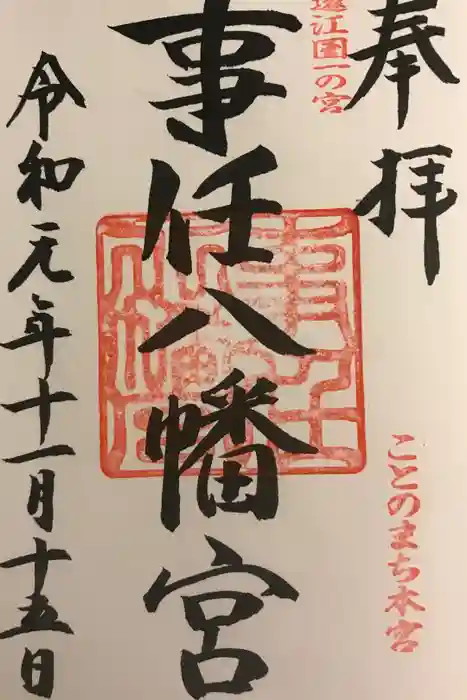 奉拝
ことのまち本宮
遠江国一の宮
事任八幡宮
令和元年十一月十五日